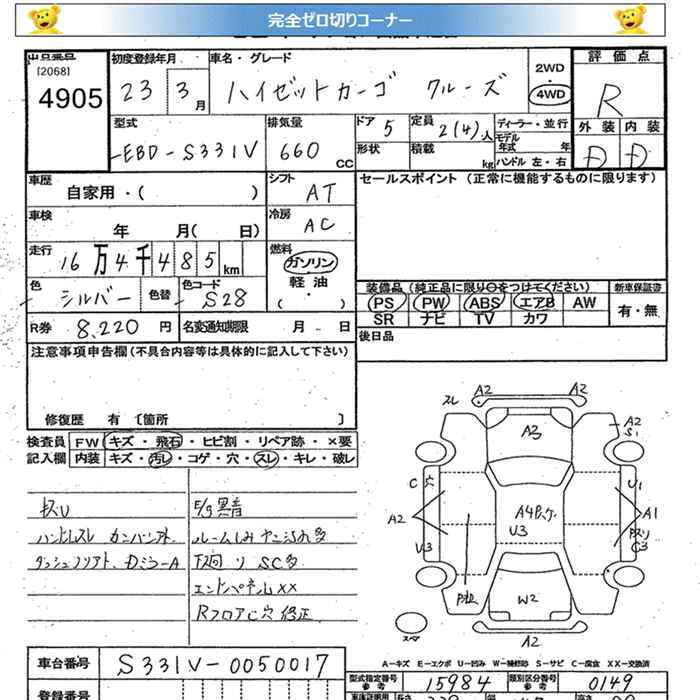 完全ゼロ切りコーナー
[2068]
4905
初度登録年月
23 3 月
車名・グレード
ハイゼットカーゴ クルーズ
2WD
4WD
評価点
R
外装 内装
D D
型式
EBD-S331V
排気量
660 CC
ドア 5
形状
定員 2(4)人
積載 kg
ディーラー・並行
モデル年式 年
ハンドル 左・右
車歴
自家用・( )
シフト
AT
セールスポイント (正常に機能するものに限ります)
車検
年 月( 日)
冷房
AC
走行
16万4千485km
燃料
ガソリン
軽油
・( )
色
シルバー
色替
色コード
S28
装備品
新車保証書
PS PW ABS エアB AW
SR ナビ TV カワ
有・無
R券 8,220 円
名変通知期限 月 日
後日品
注意事項申告欄(不具合内容等は具体的に記入して下さい)
修復歴 有 〔箇所 〕
検査員
記入欄
FW キズ・飛石・ヒビ割・リペア跡・×要
内装 キズ・汚レ・コゲ・穴・スレ・キレ・破レ
E/g異音
下廻り SC多
エンドパネルXX
Rフロア C穴 修正
A2 A2
A3
A2
S1
C穴
U1
A2
A1
U3
C3
U3
W2
A2
A-キズ E-エクボ U-凹み W-補修跡 S-サビ C-腐食 XX-交換済
車台番号
S331V-0050017
型式指定番号
参考
15984
類別区分番号
参考
0149
登録番号